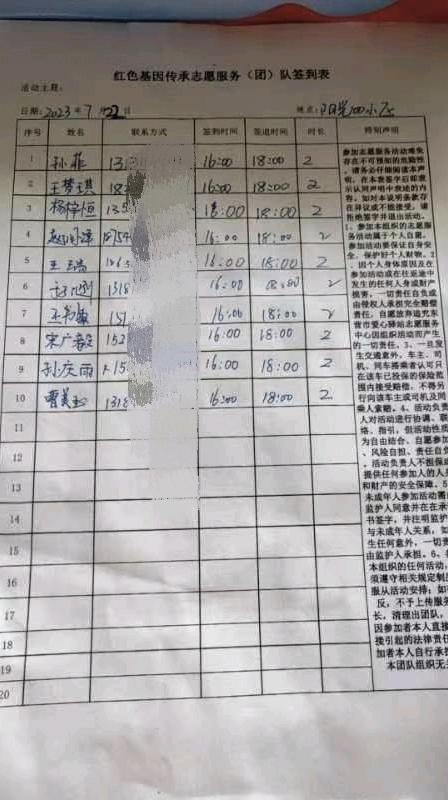 红色基因传承志愿服务（团）队签到表
活动主题：
日期：2023年7月22日 地点：阳光100小区
序号 姓名 联系方式 签到时间 签退时间 时长 特别声明
1 孙菲 16:00 18:00 2
2 王梦琪 18 16:00 18:00 2
3 杨梓恒 135 16:00 18:00 2
4 16:00 18:00 2
5 王瑞 16:00 18:00 2
6 1318 16:00 18:00 2
7 16:00 18:00 2
8 16:00 18:00 2
9 孙庆雨 16:00 18:00 2
10 曹美玉 1318 16:00 18:00 2
11
12
13
14
15
16
17
18
19
20
参加志愿服务活动难免
存在不可预知的危险性
，请务必仔细阅读本声
明，在本表签字后即表
示认同声明中表述的内
容，如对本说明条款存
在异议或不能接受，请
拒绝签字并退出活动。
1、参加本组织的志愿服
务活动属于个人自愿，
参加活动要保证自身安
全、保护好个人财物。2
、因个人身体原因及在
参加活动或在往返途中
发生的任何人身或财产
损害，一切责任自负或
由侵权人承担安全赔偿
责任，自愿放弃追究东
营市爱心驿站志愿服务
中心因组织活动而产生
的一切责任。3、一旦发
生交通意外，车主、司
机、同车搭乘者认可只
在该车已投保的保险范
围内接受赔偿，不得另
行向该车主或司机及同
乘人索赔。4、活动负责
人对活动进行协调、联
络、指引，但活动性质
为自由结合、自愿参加
、风险自担、责任自负
，活动负责人不担保或
提供任何参加人的人身
和财产的安全保障。5、
未成年人参加活动需
监护人同意并在在承
书签字，并注明监护
与未成年人关系，如
生任何意外，一切责
由监护人承担。6、
本组织的任何活动，
须遵守相关规定制度
服从活动安排；如
反，不予上传服务
长，清理出团队，
因参加者本人直接
接引起的法律责任
加者本人自行承担
本团队组织无